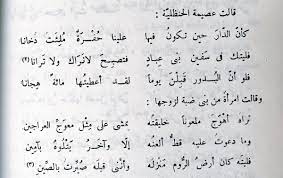 قالت عصيمة الحنظلية :
كأن الدار حين تكون فيها علينا حفرة ملئت دخانا
فليتك في سفين بني عباد فتصبح لا تراك ولا ترانا (٢)
فلو أن البدور قبلن يوما لقد أعطيتها مائة هجانا
وقالت امرأة من بني ضبة لزوجها :
تراه أهوج ملعونا خليقته يمشي على مثل معوج العراجين
وما دعوت عليه قط ألعنه إلا وآخر يتلوه بآمين
فليته كان أرض الروم منزله وأنني قبله صيرت بالصين (٣)